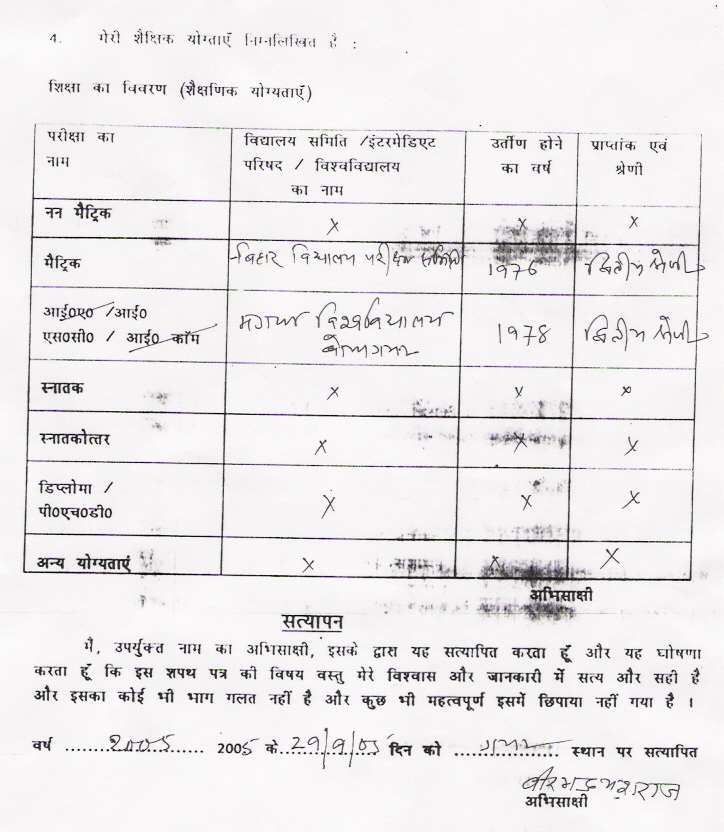 4. मेरी शैक्षिक योग्ताएँ निम्नलिखित है :
शिक्षा का विवरण (शैक्षणिक योग्यताएँ)
परीक्षा का नाम विद्यालय समिति /इंटरमेडिएट परिषद / विश्वविद्यालय का नाम उर्तीण होने का वर्ष प्राप्तांक एवं श्रेणी
नन मैट्रिक x x x
मैट्रिक बिहार विद्यालय परीक्षा समिति 1976 द्वितीय श्रेणी
आई०ए० /आई० एस०सी० / आई० कॉम मगध विश्वविद्यालय बोधगया 1978 द्वितीय श्रेणी
स्नातक x x x
स्नातकोत्तर x x x
डिप्लोमा / पी०एच०डी० x x x
अन्य योग्यताएं x x x
अभिसाक्षी
सत्यापन
मैं, उपर्युक्त नाम का अभिसाक्षी, इसके द्वारा यह सत्यापित करता हूँ और यह घोषणा
करता हूँ कि इस शपथ पत्र की विषय वस्तु मेरे विश्वास और जानकारी में सत्य और सही है
और इसका कोई भी भाग गलत नहीं है और कुछ भी महत्वपूर्ण इसमें छिपाया नहीं गया है ।
वर्ष ......2005...... 2005 के 29/9/05 दिन को ...गया... स्थान पर सत्यापित
अभिसाक्षी